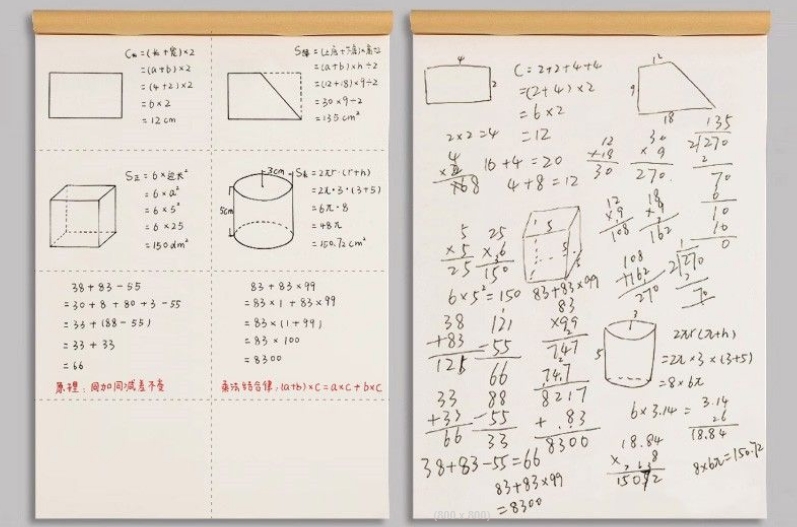 C长=(长+宽)×2
=(a+b)×2
=(4+2)×2
=6×2
=12cm
S梯=(上底+下底)×高÷2
=(a+b)×h÷2
=(12+18)×9÷2
=30×9÷2
=135cm²
S正=6×边长²
=6×a²
=6×5²
=6×25
=150dm²
3cm
5cm
=2πr·(r+h)
=2π·3·(3+5)
=6π·8
=48π
=150.72cm²
38+83-55
=30+8+80+3-55
=33+(88-55)
=33+33
=66
原理:同加同减差不变
83+83×99
=83×1+83×99
=83×(1+99)
=83×100
=8300
乘法结合律:(a+b)×C=a×C+b×C
4
2
C=2+2+4+4
=(2+4)×2
=6×2
=12
12
9
18
2×2=4
16+4=20
4+8=12
12
×18
30
30
×9
270
135
2/270
2
70
6
10
10
0
5
×5
25
25
×6
150
5
5
12
×9
108
18
×9
162
6×5²=150
83+83×99
108
+162
270
2/270
2
70
38
+83
121
-55
66
83
×99
747
747
8217
+83
8300
3
5
2πr(π+h)
=2π×3×(3+5)
=8×6π
33
+33
66
88
-55
33
6×3.14=
3.14
18.84
18.84
×8
8×6π=150.72
38+83-55=66
83+83×99
=8300
(800 x 800)